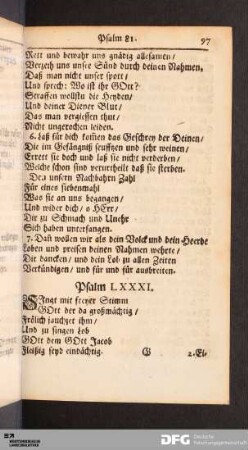 Psalm 81. 97
Rett und bewahr uns gnädig allesamen/
Vergeb uns unsre Sünd durch deinen Nahmen,
Daß man nicht unser spott/
Und sprech: Wo ist ihr GOtt?
Straffen wollstu die Heyden/
Und deiner Diener Blut/
Das man vergiessen thut/
Nicht ungerochen leiden.
6. Laß für dich kommen das Geschrey der Deinen/
Die im Gefängnß seufftzen und sehr weinen/
Errett sie doch und laß sie nicht verderben/
Welche schon sind verurtheilt daß sie sterben.
Den unsern Nachbahrn Zahl
Für eines siebenmahl
Was sie an uns begangen/
Und wider dich/ o HErr/
Die zu Schmach und Unehr
Sich haben unterfangen.
7. Dañ wollen wir als dein Volck und dein Heerde
Loben und preisen deinen Nahmen wehrte/
Die dancken/ und dein Lob zu allen Zeiten
Verkündigen/ und für und für ausbreiten.
Psalm LXXXI.
SIngt mit freyer Stimm
GOtt der da großmächtig/
Frölich jauchtzet ihm/
Und zu singen Lob
GOtt dem GOtt Jacob
Fleißig seyd eindächtig.
G 2. El-
DFG Deutsche
Forschungsgemeinschaft